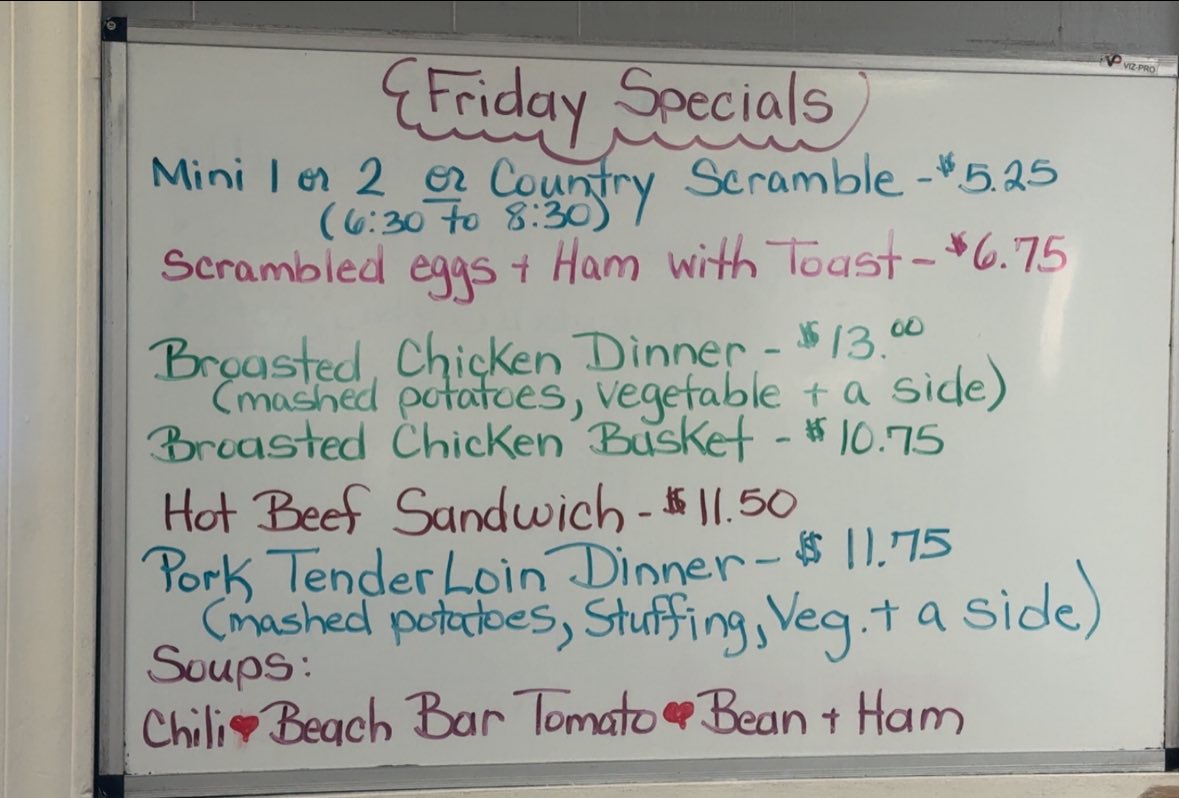 VIZ-PRO
Friday Specials
Mini 1 or 2 or Country Scramble - $5.25
(6:30 to 8:30)
Scrambled eggs + Ham with Toast - $6.75
Broasted Chicken Dinner - $13.00
(mashed potatoes, vegetable + a side)
Broasted Chicken Basket - $10.75
Hot Beef Sandwich - $11.50
Pork TenderLoin Dinner - $11.75
(mashed potatoes, Stuffing, Veg. + a side)
Soups:
Chili ♥ Beach Bar Tomato ♥ Bean + Ham